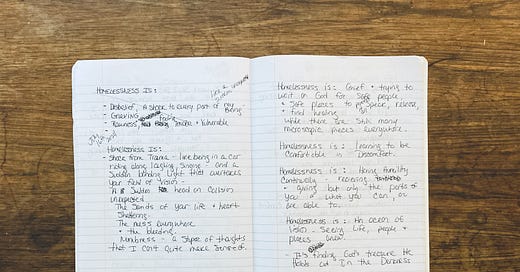 Homelessness is:
- Disbelief, A shock to every part of my Being
- Grieving
- Rawness, feeling Tender + Vulnerable
Homelessness is:
- Shock from Trauma - like being in a car
riding along laughing, singing - and a
Sudden blinding light that overtakes
Your field of vision -
A Sudden head on Collision
unexpected
The Sounds of Your life + heart
Shattering.
The mess everywhere
- the bleeding.
Numbness - A Stupor of thoughts
that I can't quite make Sense of.
Homelessness is: Grief + trying to
wait on God for Safe people,
Safe places to speak, release,
+ find healing in
While there are still many
microscopic pieces everywhere.
Homelessness is: learning to be
Comfortable in Discomfort.
Homelessness is: Having Humility
Continously - receiving
+ giving but only the parts of
you + what you can, or
are able to.
Homelessness is: An ocean of
Seeing life, people +
places anew.
- It's finding God's treasure He
Holds out In the Darkness